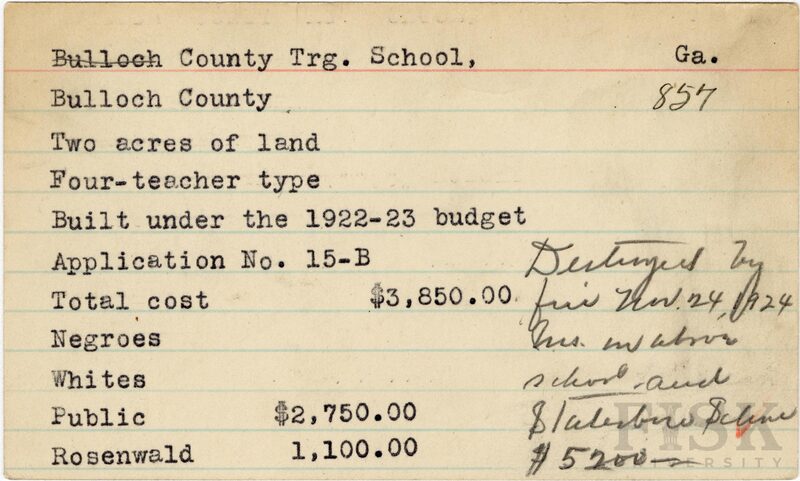 Bulloch County Trg. School, Ga.
Bulloch County 857
Two acres of land
Four-teacher type
Built under the 1922-23 budget
Application No. 15-B
Total cost $3,850.00
Negroes
Whites
Public $2,750.00
Rosenwald 1,100.00
Destroyed by
fire Nov. 24, 1924
Ins. on above
school and
Statesboro School
$5200
FISK
UNIVERSITY